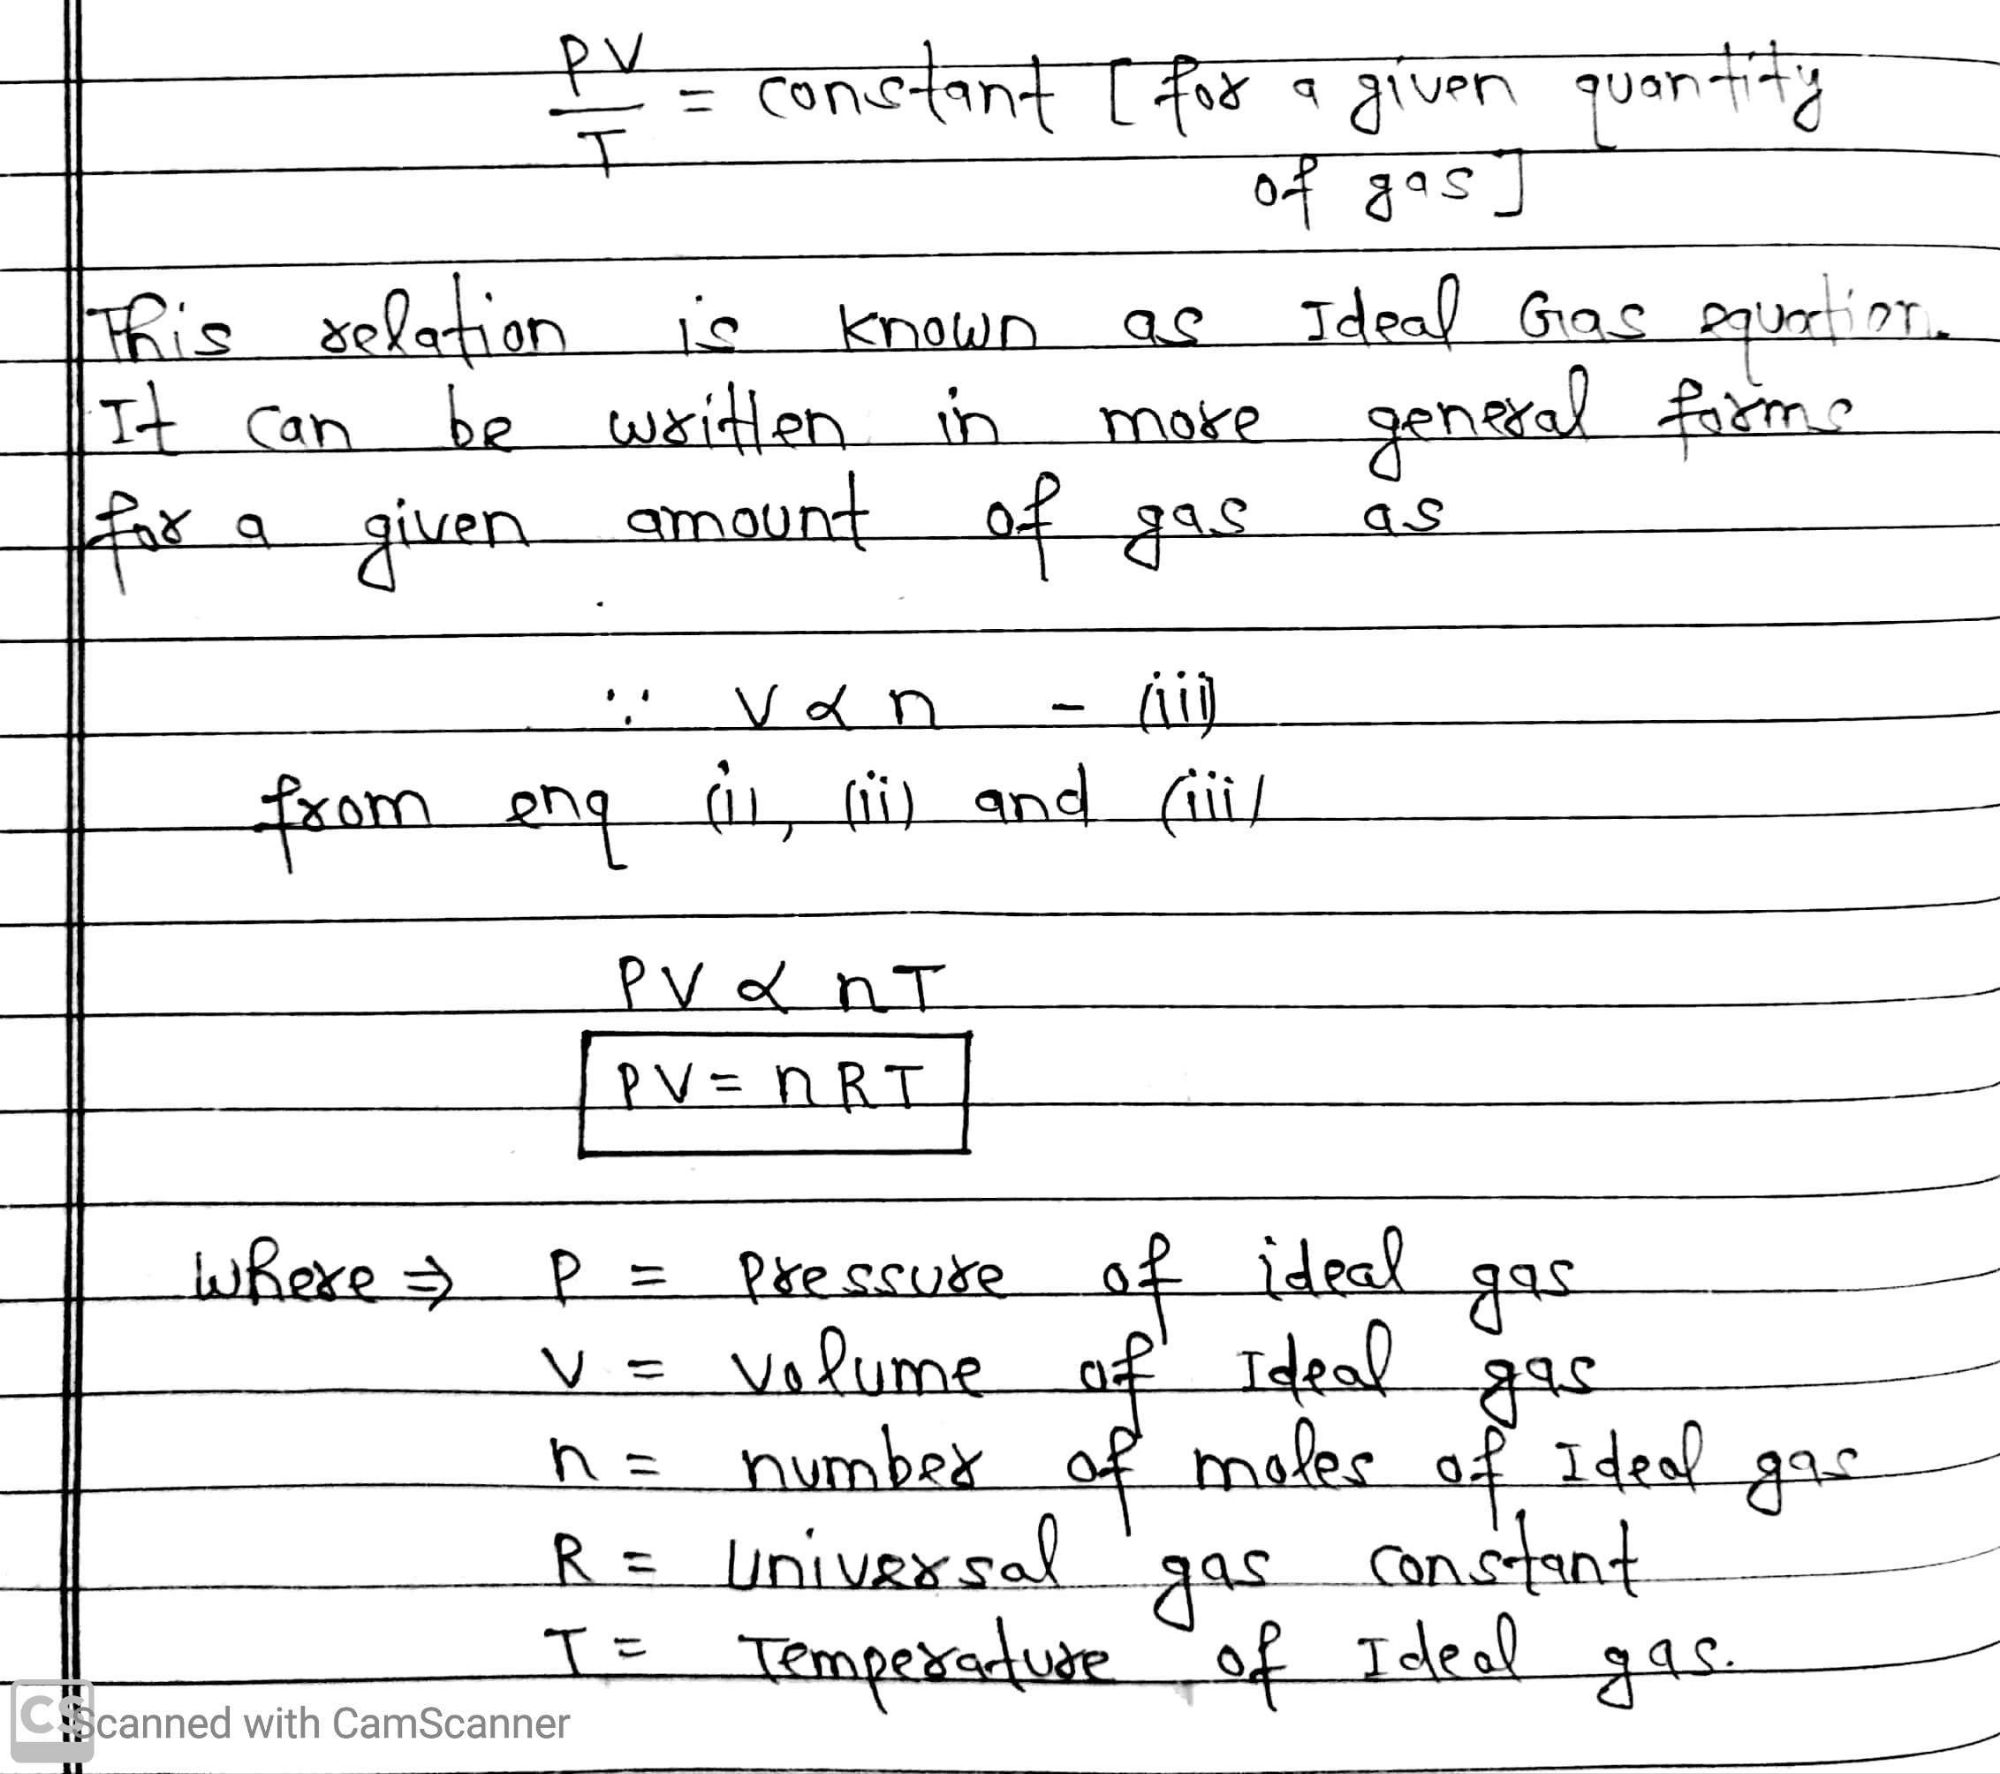 PV/T = constant [for a given quantity
of gas]
This relation is known as Ideal Gas equation.
It can be written in more general forms
for a given amount of gas as
∵ V α n - (iii)
from enq (i), (ii) and (iii)
PV α nT
PV = nRT
where ⇒ P = Pressure of ideal gas
V = Volume of Ideal gas
n = number of moles of Ideal gas
R = Universal gas constant
T = Temperature of Ideal gas.
CS Scanned with CamScanner